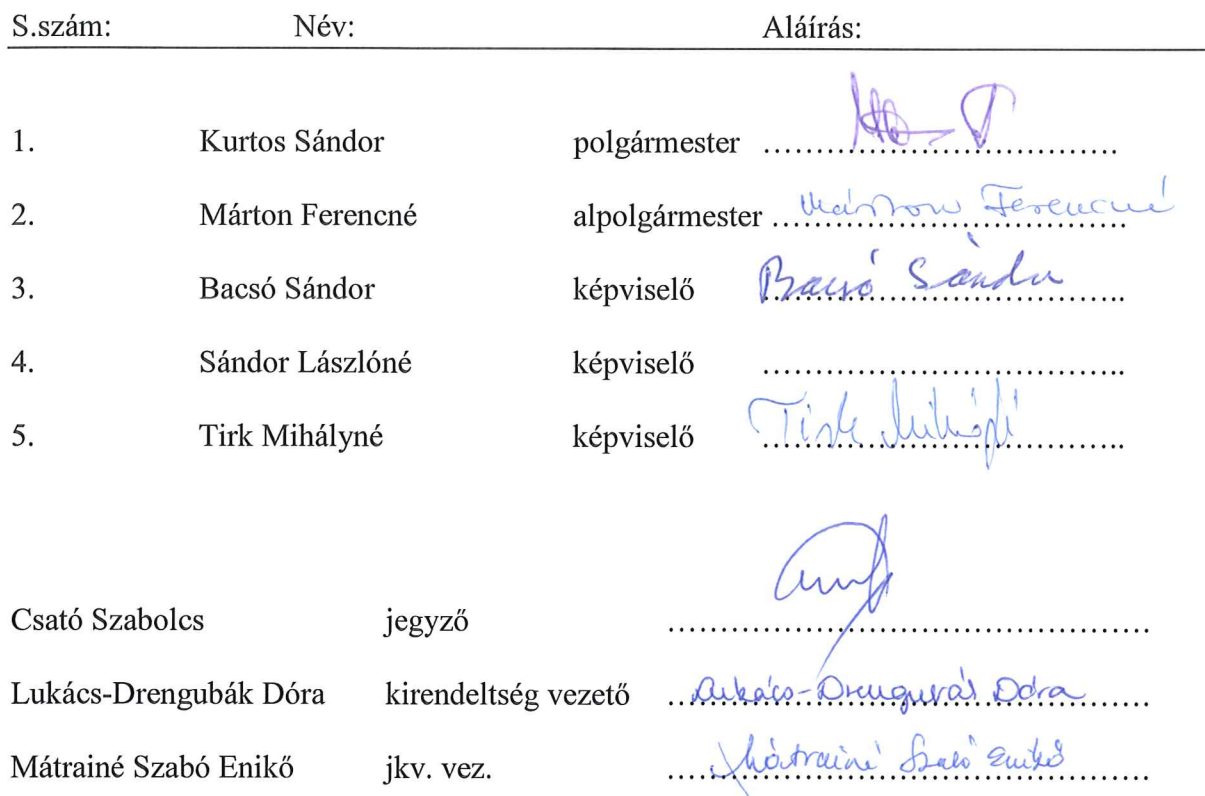 S.szám: Név: Aláírás:
1. Kurtos Sándor polgármester ……………………………
2. Márton Ferencné alpolgármester Márton Ferencné
3. Bacsó Sándor képviselő Bacsó Sándor
4. Sándor Lászlóné képviselő ……………………………..
5. Tirk Mihályné képviselő Tirk Mihályné
Csató Szabolcs jegyző ……………………………………
Lukács-Drengubák Dóra kirendeltség vezető Lukács-Drengubák Dóra
Mátrainé Szabó Enikő jkv. vez. Mátrainé Szabó Enikő